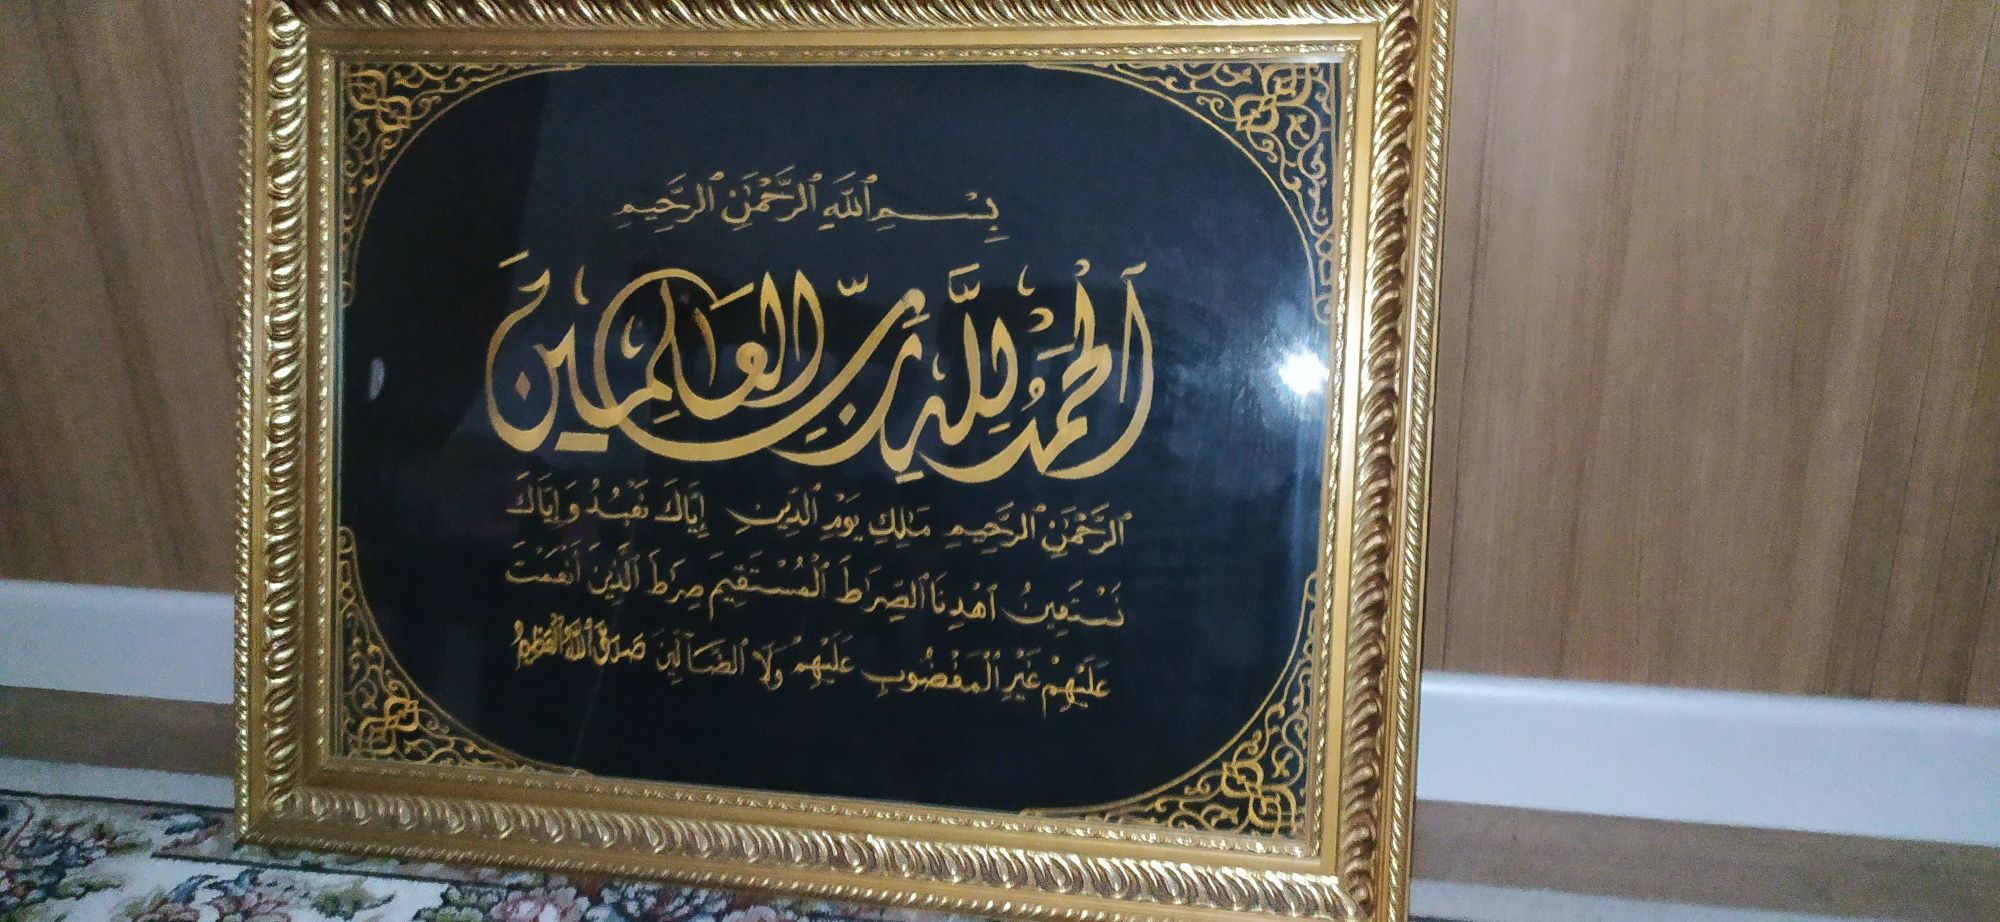 بِسْمِ ٱللَّهِ ٱلرَّحْمَٰنِ ٱلرَّحِيمِ
ٱلْحَمْدُ لِلَّهِ رَبِّ ٱلْعَالَمِينَ
ٱلرَّحْمَٰنِ ٱلرَّحِيمِ مَٰلِكِ يَوْمِ ٱلدِّينِ إِيَّاكَ نَعْبُدُ وَإِيَّاكَ
نَسْتَعِينُ ٱهْدِنَا ٱلصِّرَٰطَ ٱلْمُسْتَقِيمَ صِرَٰطَ ٱلَّذِينَ أَنْعَمْتَ
عَلَيْهِمْ غَيْرِ ٱلْمَغْضُوبِ عَلَيْهِمْ وَلَا ٱلضَّآلِّينَ صَدَقَ ٱللَّهُ ٱلْعَظِيمُ